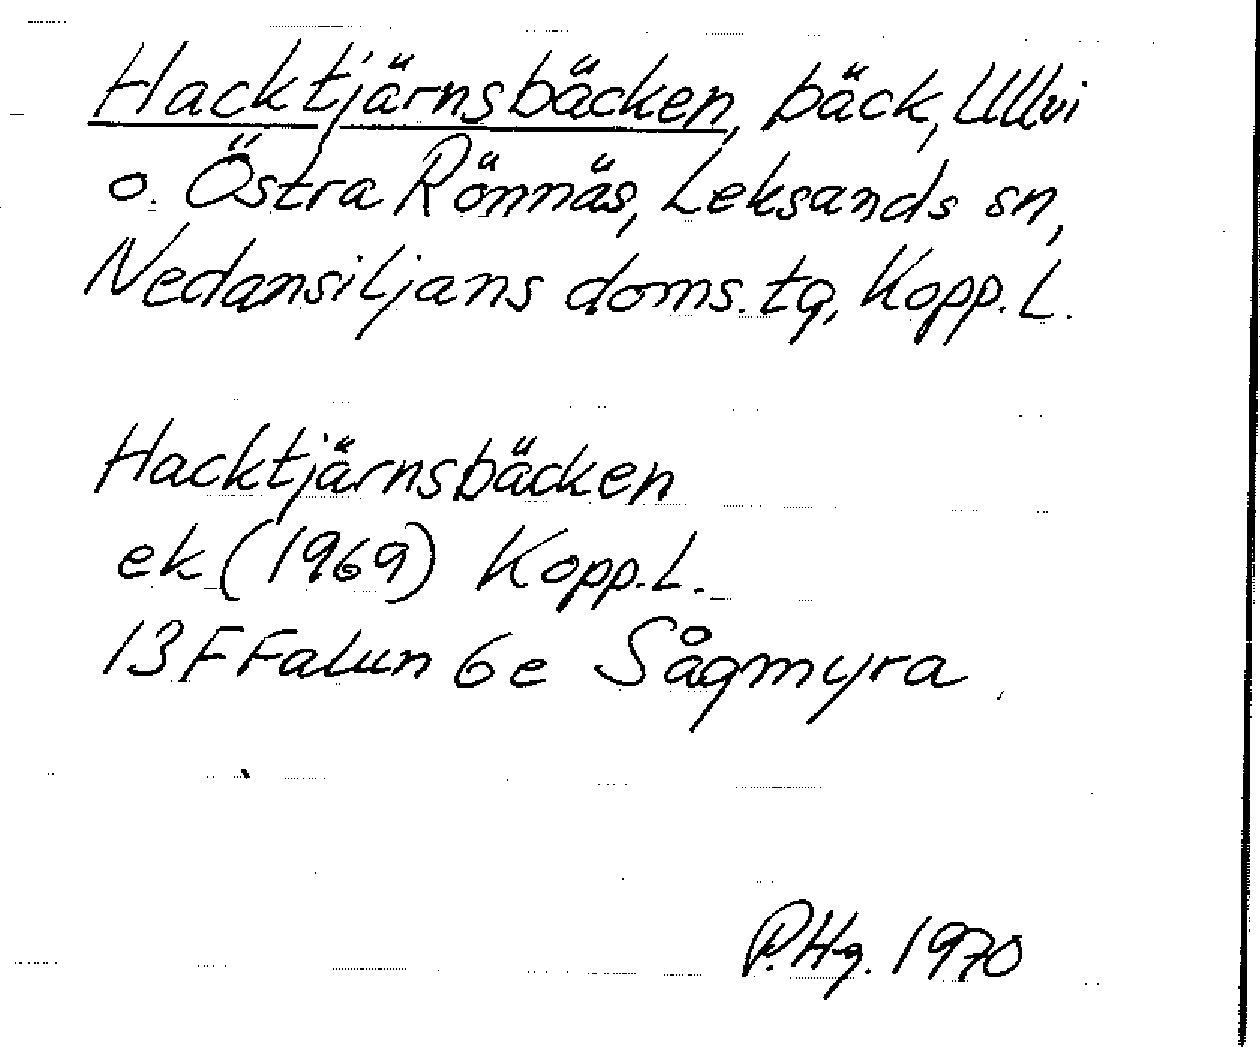 Hacktjärnsbäcken, bäck, Ullvi
o. Östra Rönnäs, Leksands sn,
Nedansiljans doms. tg, Kopp. L.
Hacktjärnsbäcken
ek (1969) Kopp. L.
13F Falun 6e Sågmyra
P.Hg. 1970